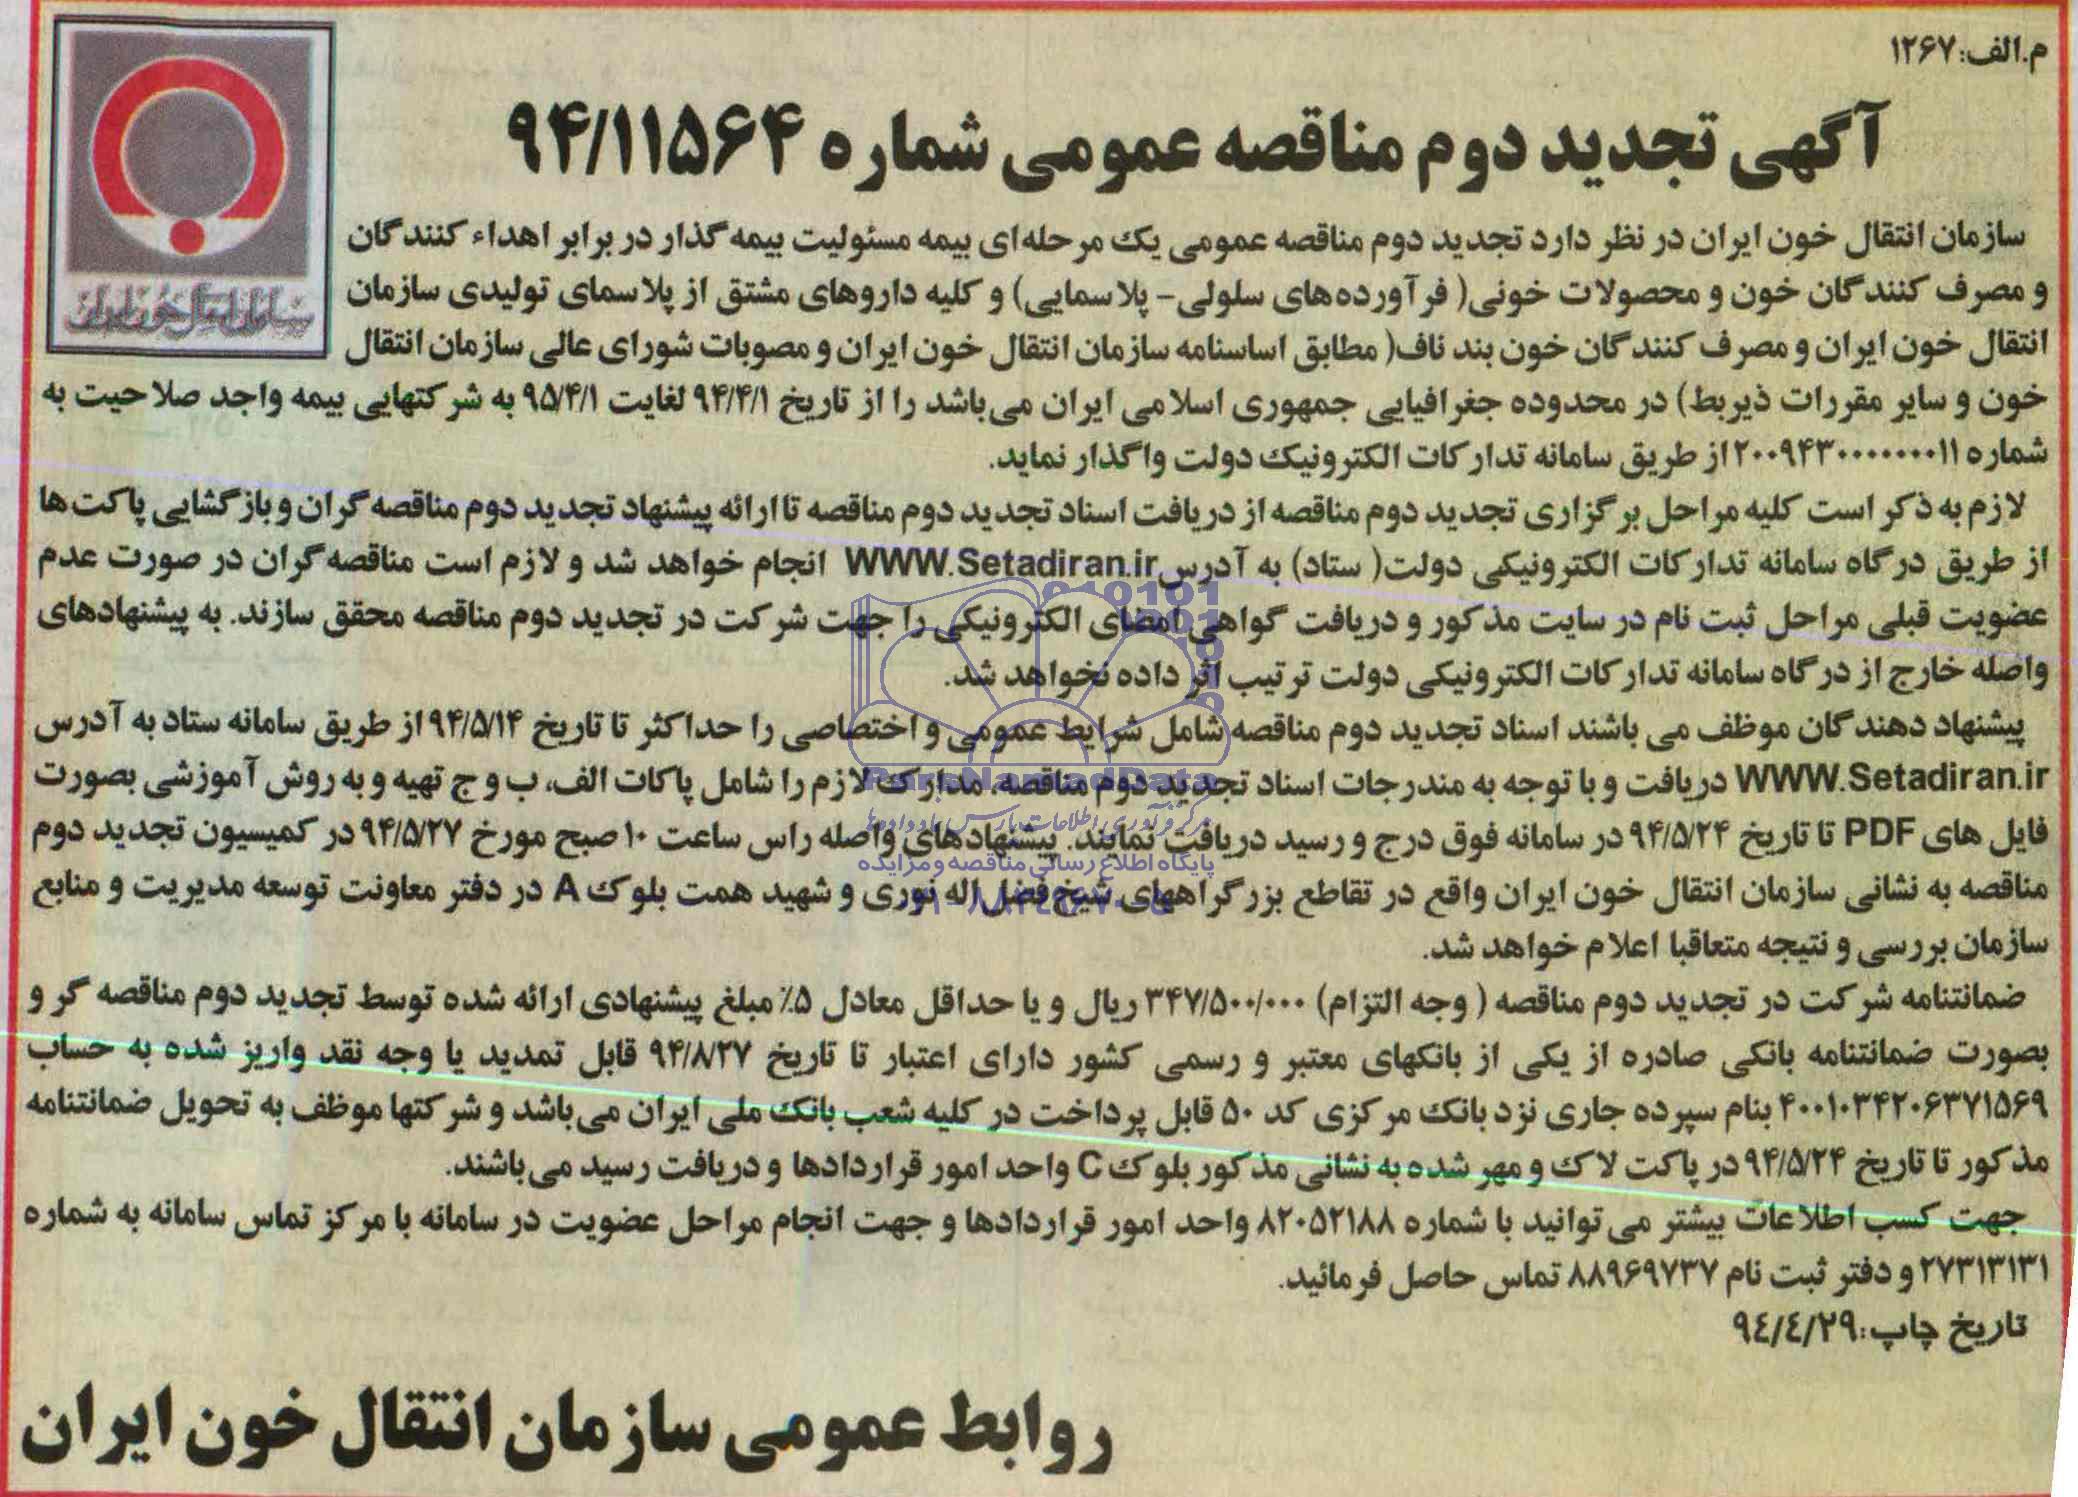 م.الف: ۱۲۶۷
آگهی تجدید دوم مناقصه عمومی شماره ۹۴/۱۱۵۶۴
سازمان انتقال خون ایران
سازمان انتقال خون ایران در نظر دارد تجدید دوم مناقصه عمومی یک مرحله‌ای بیمه مسئولیت بیمه گذار در برابر اهداء کنندگان
و مصرف کنندگان خون و محصولات خونی( فرآورده‌های سلولی- پلاسمایی) و کلیه داروهای مشتق از پلاسمای تولیدی سازمان
انتقال خون ایران و مصرف کنندگان خون بند ناف( مطابق اساسنامه سازمان انتقال خون ایران و مصوبات شورای عالی سازمان انتقال
خون و سایر مقررات ذیربط) در محدوده جغرافیایی جمهوری اسلامی ایران می‌باشد را از تاریخ ۹۴/۴/۱ لغایت ۹۵/۴/۱ به شرکتهایی بیمه واجد صلاحیت به
شماره ۲۰۰۹۴۳۰۰۰۰۰۰۰۱۱ از طریق سامانه تدارکات الکترونیک دولت واگذار نماید.
لازم به ذکر است کلیه مراحل برگزاری تجدید دوم مناقصه از دریافت اسناد تجدید دوم مناقصه تا ارائه پیشنهاد تجدید دوم مناقصه گران و بازگشایی پاکت ها
از طریق درگاه سامانه تدارکات الکترونیکی دولت( ستاد) به آدرس WWW.Setadiran.ir انجام خواهد شد و لازم است مناقصه‌گران در صورت عدم
عضویت قبلی مراحل ثبت نام در سایت مذکور و دریافت گواهی امضای الکترونیکی را جهت شرکت در تجدید دوم مناقصه محقق سازند. به پیشنهادهای
واصله خارج از درگاه سامانه تدارکات الکترونیکی دولت ترتیب اثر داده نخواهد شد.
پیشنهاد دهندگان موظف می باشند اسناد تجدید دوم مناقصه شامل شرایط عمومی و اختصاصی را حداکثر تا تاریخ ۹۴/۵/۱۴ از طریق سامانه ستاد به آدرس
WWW.Setadiran.ir دریافت و با توجه به مندرجات اسناد تجدید دوم مناقصه، مدارک لازم را شامل پاکات الف، ب و ج تهیه و به روش آموزشی بصورت
فایل های PDF تا تاریخ ۹۴/۵/۲۴ در سامانه فوق درج و رسید دریافت نمایند. پیشنهادهای واصله راس ساعت ۱۰ صبح مورخ ۹۴/۵/۲۷ در کمیسیون تجدید دوم
مناقصه به نشانی سازمان انتقال خون ایران واقع در تقاطع بزرگراههای شیخ فضل اله نوری و شهید همت بلوک A در دفتر معاونت توسعه مدیریت و منابع
سازمان بررسی و نتیجه متعاقبا اعلام خواهد شد.
ضمانتنامه شرکت در تجدید دوم مناقصه ( وجه التزام) ۳۴۷/۵۰۰/۰۰۰ ریال و یا حداقل معادل ۵٪ مبلغ پیشنهادی ارائه شده توسط تجدید دوم مناقصه گر و
بصورت ضمانتنامه بانکی صادره از یکی از بانکهای معتبر و رسمی کشور دارای اعتبار تا تاریخ ۹۴/۸/۲۷ قابل تمدید یا وجه نقد واریز شده به حساب
۴۰۰۱۰۳۴۲۰۶۳۷۱۵۶۹ بنام سپرده جاری نزد بانک مرکزی کد ۵۰ قابل پرداخت در کلیه شعب بانک ملی ایران می‌باشد و شرکتها موظف به تحویل ضمانتنامه
مذکور تا تاریخ ۹۴/۵/۲۴ در پاکت لاک و مهر شده به نشانی مذکور بلوک C واحد امور قراردادها و دریافت رسید می‌باشند.
جهت کسب اطلاعات بیشتر می توانید با شماره ۸۲۰۵۲۱۸۸ واحد امور قراردادها و جهت انجام مراحل عضویت در سامانه با مرکز تماس سامانه به شماره
۲۷۳۱۳۱۳۱ و دفتر ثبت نام ۸۸۹۶۹۷۳۷ تماس حاصل فرمائید.
تاریخ چاپ: ۹٤/٤/۲۹
روابط عمومی سازمان انتقال خون ایران
پایگاه اطلاع رسانی مناقصه و مزایده